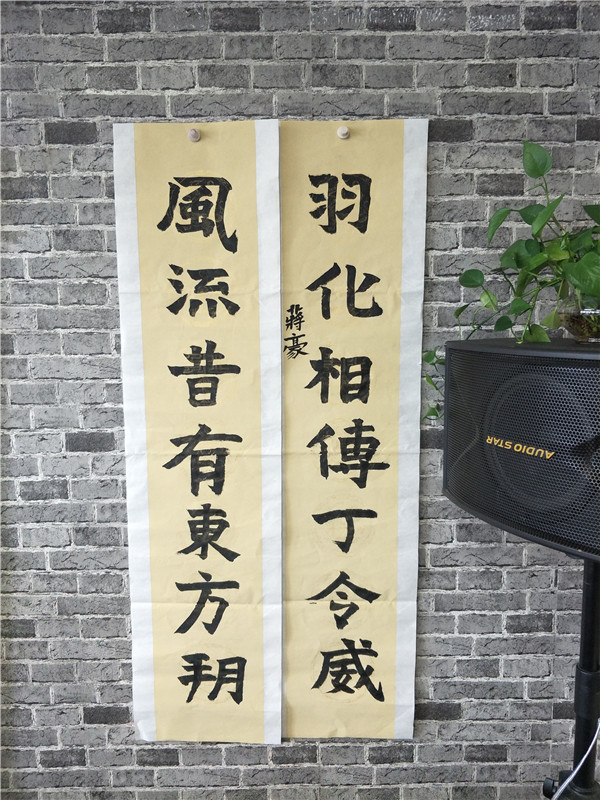 羽化相傳丁令威
風流昔有東方朔
蔣豪
AUDIO STAR